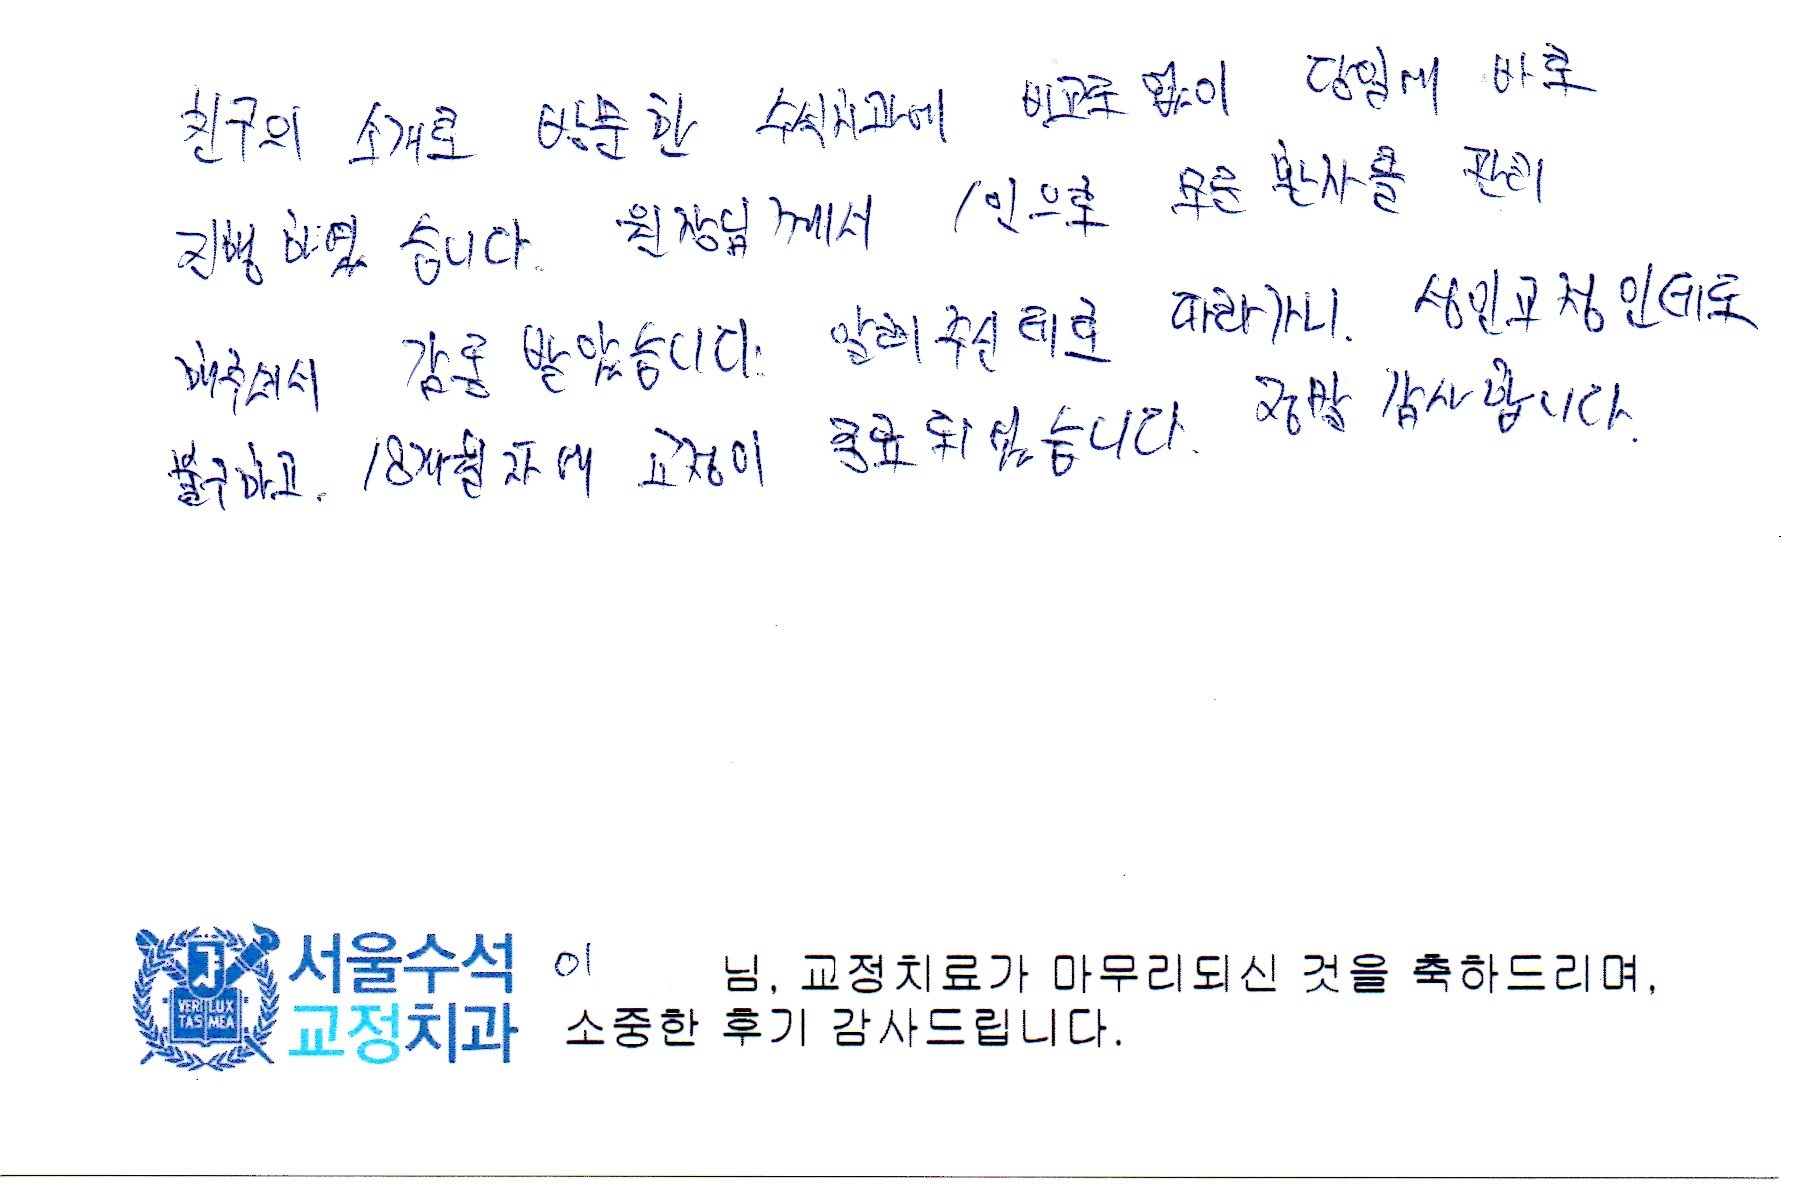 친구의 소개로 방문한 수석치과에 비교도 없이 당일에 바로
진행하였습니다. 원장님께서 1인으로 모든 환자를 관리
해주셔서 감동 받았습니다. 알려주신 데로 따라가니. 성인교정인데도
불구하고. 18개월차에 교정이 종료되었습니다. 정말 감사합니다.
서울수석
교정치과
VERI LUX
TAS MEA
이 님, 교정치료가 마무리되신 것을 축하드리며,
소중한 후기 감사드립니다.